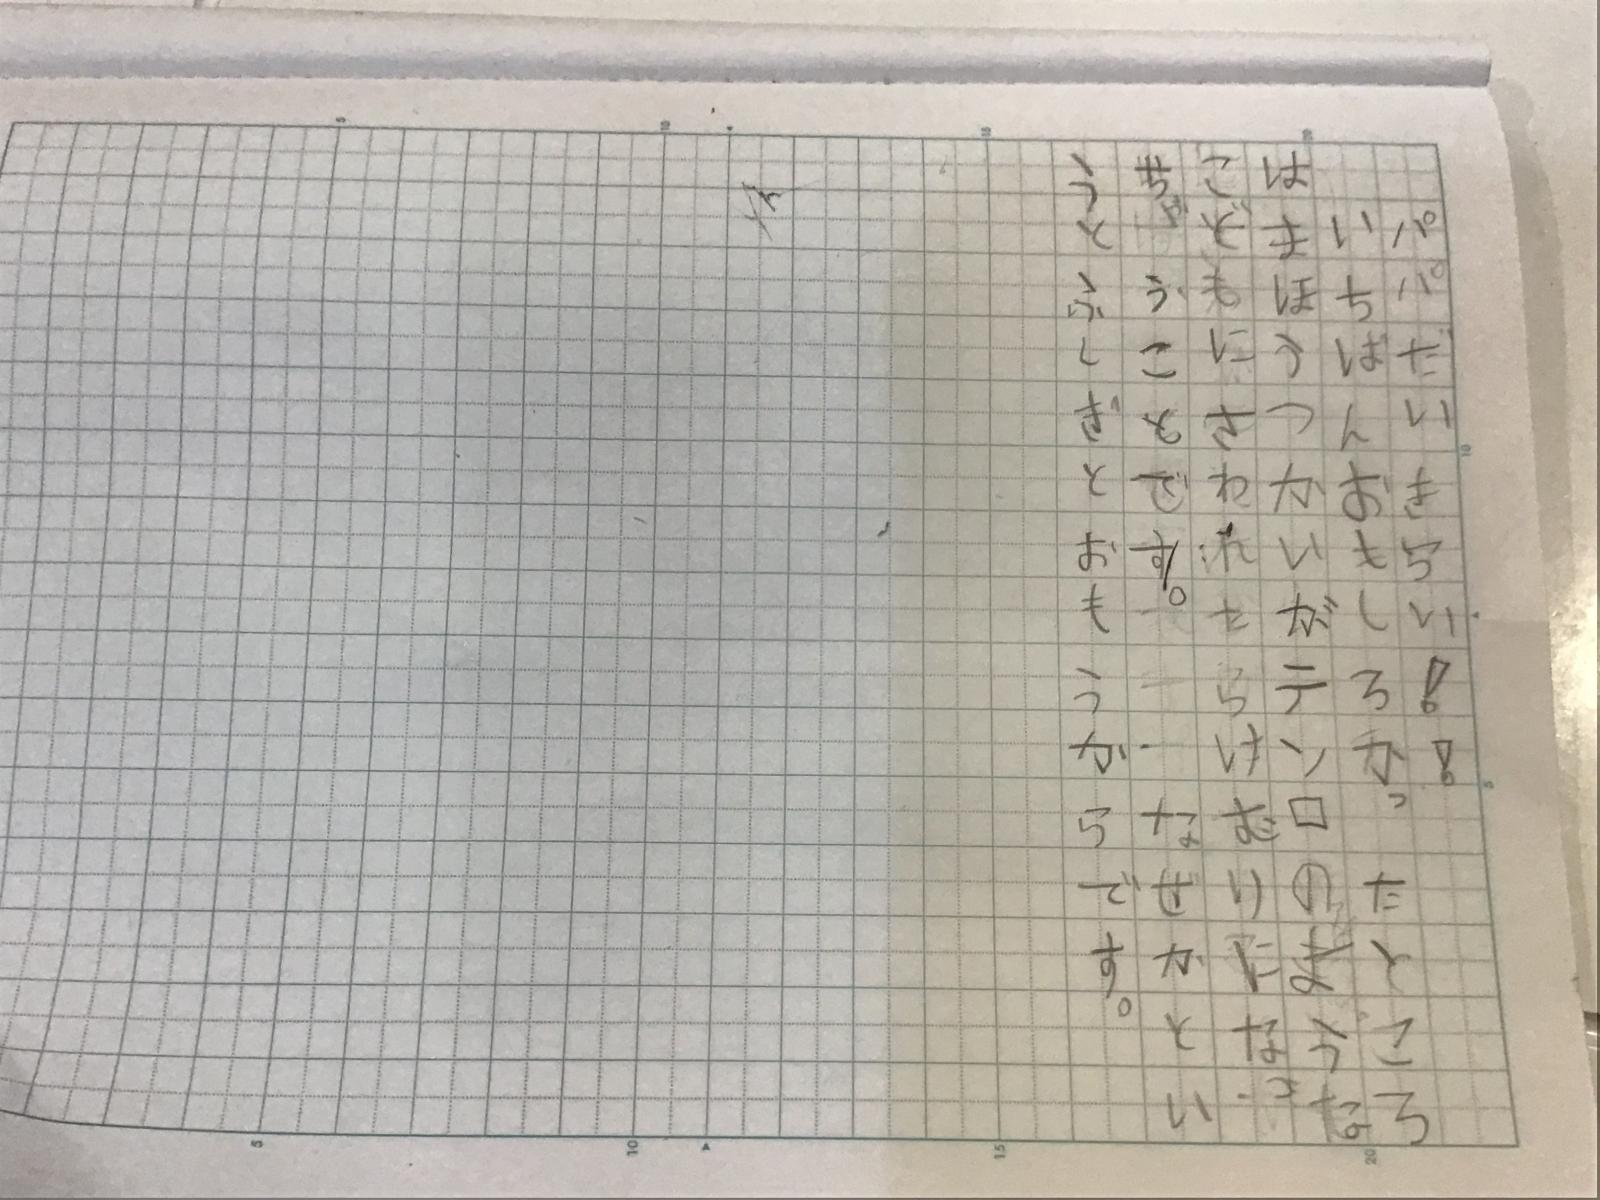 パパだいきらい!!
いちばんおもしろかったところ
はまほうつかいがテン口のような
こどもにさわれたらけむりになっ
ちゃうことです。なぜかとい
うとふしぎとおもうからです。